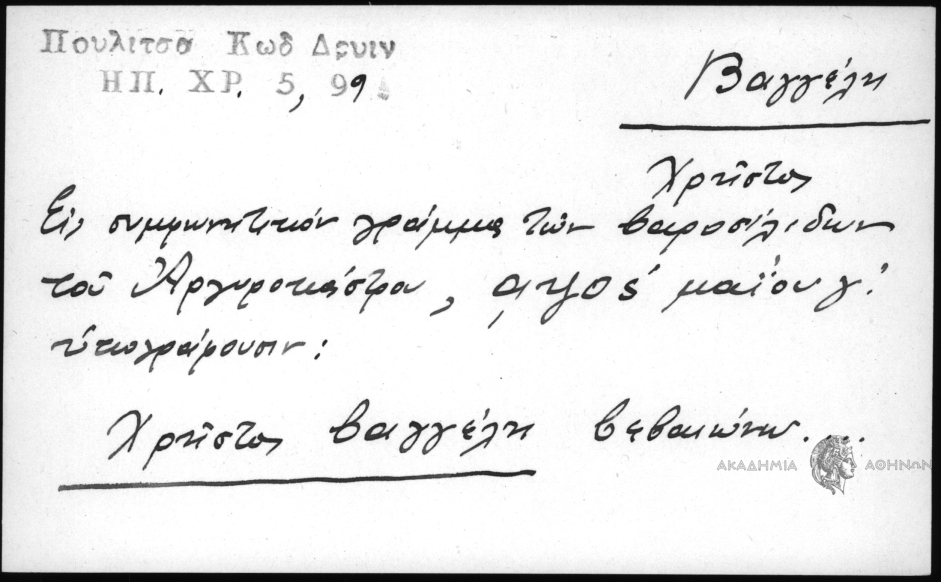 Πουλιτσα Κωδ Δρυιν
ΗΠ. ΧΡ. 5, 99
Βαγγέλη
Χρῆστος
Εἰς συμφωνητικόν γράμμα τῶν βαροσίλιδων
τοῦ Ἀργυροκάστρου, ͵αψοϛ μαΐου γ΄.
ὑπογράφουσιν:
Χρῆστος Βαγγέλη βεβαιώνω....
ΑΚΑΔΗΜΙΑ ΑΘΗΝΩΝ